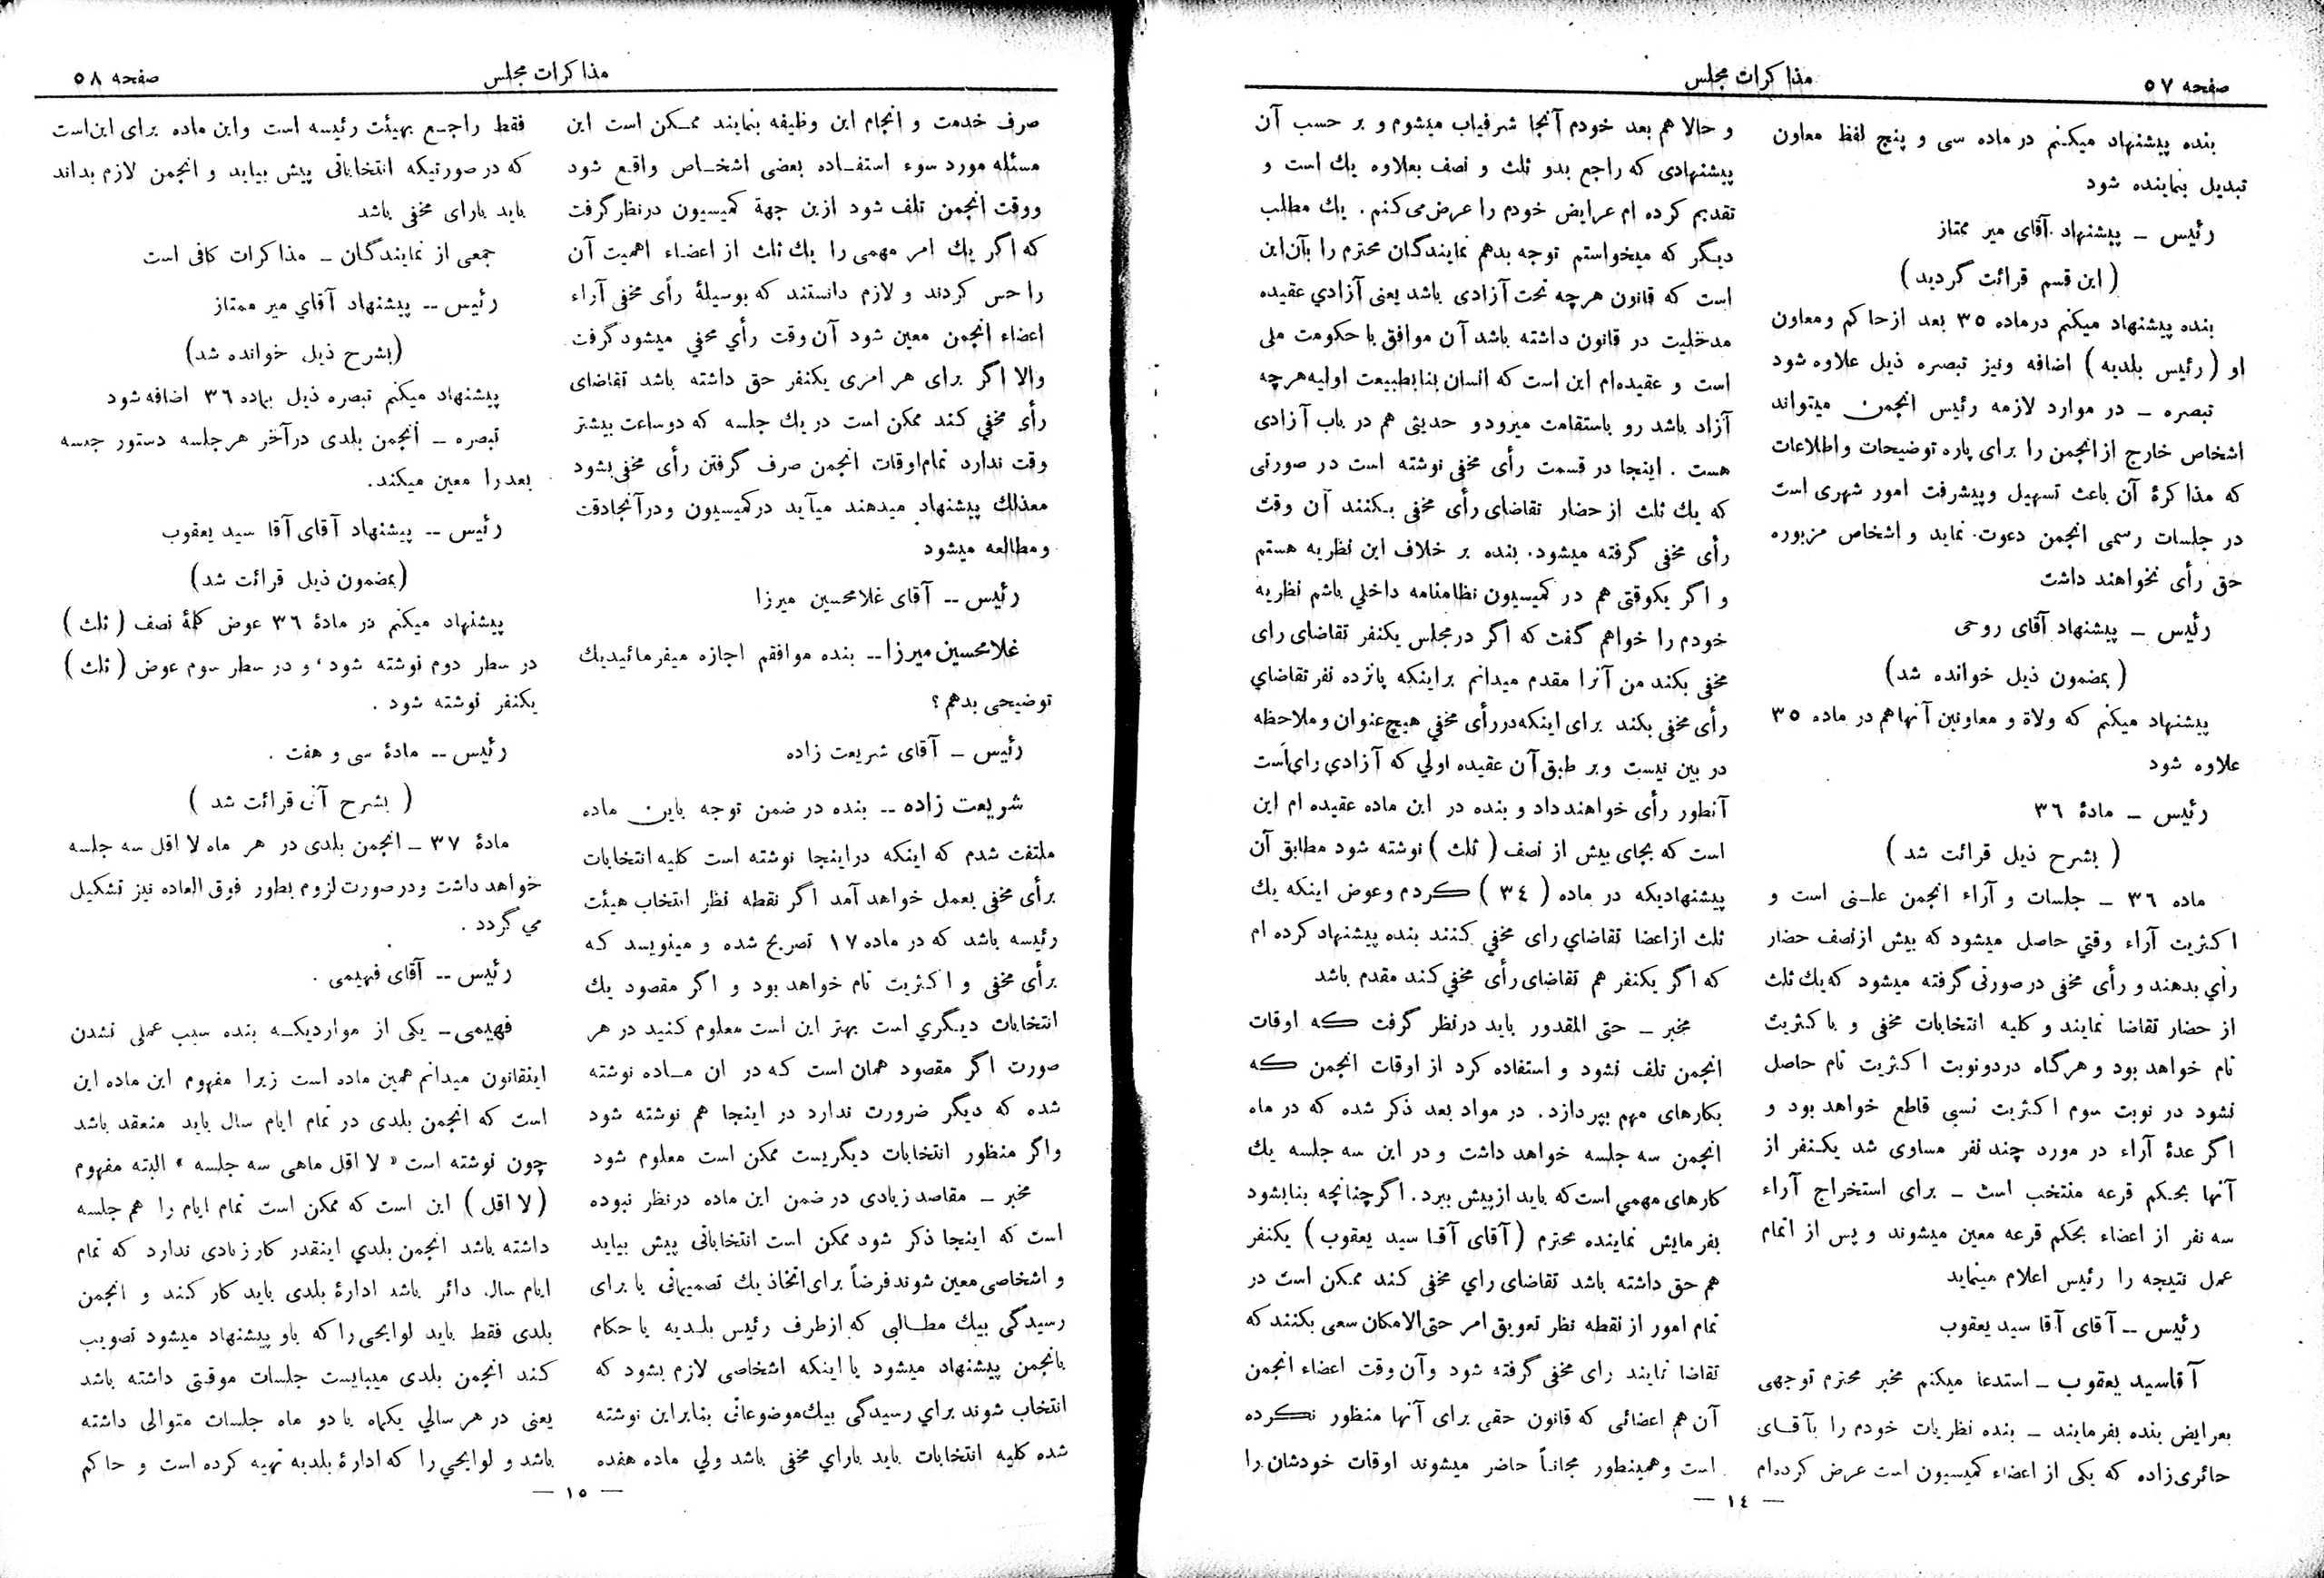 صفحه ٥٧
مذاکرات مجلس
بنده پیشنهاد میکنم در ماده سی و پنج لفظ معاون
تبدیل بنماینده شود
رئیس ــ پیشنهاد آقای میر ممتاز
(این قسم قرائت گردید)
بنده پیشنهاد میکنم درماده ٣٥ بعد از حاکم ومعاون
او (رئیس بلدیه) اضافه ونیز تبصره ذیل علاوه شود
تبصره ــ در موارد لازمه رئیس انجمن میتواند
اشخاص خارج از انجمن را برای پاره توضیحات واطلاعات
که مذاکرهٔ آن باعث تسهیل وپیشرفت امور شهری است
در جلسات رسمی انجمن دعوت نماید و اشخاص مزبوره
حق رأی نخواهند داشت
رئیس ــ پیشنهاد آقای روحی
(بمضمون ذیل خوانده شد)
پیشنهاد میکنم که ولاة و معاونین آنهاهم در ماده ٣٥
علاوه شود
رئیس ــ مادهٔ ٣٦
(بشرح ذیل قرائت شد)
ماده ٣٦ ــ جلسات و آراء انجمن علنی است و
اکثریت آراء وقتي حاصل میشود که بیش ازنصف حضار
رأي بدهند و رأی مخفی در صورتی گرفته میشود که یك ثلث
از حضار تقاضا نمایند و کلیه انتخابات مخفی و باکثریت
تام خواهد بود و هرگاه دردونوبت اکثریت تام حاصل
نشود در نوبت سوم اکثریت نسبی قاطع خواهد بود و
اگر عدهٔ آراء در مورد چند نفر مساوی شد یکنفر از
آنها بحکم قرعه منتخب است ــ برای استخراج آراء
سه نفر از اعضاء بحکم قرعه معین میشوند و پس از اتمام
عمل نتیجه را رئیس اعلام مینماید
رئیس ــ آقای آقا سید یعقوب
آقاسید یعقوب ــ استدعا میکنم مخبر محترم توجهی
بعرایض بنده بفرمایند ــ بنده نظریات خودم را بآقای
حائری زاده که یکی از اعضاء کمیسیون است عرض کرده‌ام
و حالا هم بعد خودم آنجا شرفیاب میشوم و بر حسب آن
پیشنهادی که راجع بدو ثلث و نصف بعلاوه یك است و
تقدیم کرده ام عرایض خودم را عرض می کنم. یك مطلب
دیگر که میخواستم توجه بدهم نمایندگان محترم را بآن این
است که قانون هرچه تحت آزادی باشد یعنی آزادي عقیده
مدخلیت در قانون داشته باشد آن موافق با حکومت ملی
است و عقیده‌ام این است که انسان بنابطبیعت اولیه هرچه
آزاد باشد رو باستقامت میرودو حدیثی هم در باب آزادی
هست . اینجا در قسمت رأی مخفی نوشته است در صورتی
که یك ثلث از حضار تقاضای رأی مخفی بکنند آن وقت
رأی مخفی گرفته میشود. بنده بر خلاف این نظریه هستم
و اگر یکوقتی هم در کمیسیون نظامنامه داخلي باشم نظریه
خودم را خواهم گفت که اگر درمجلس یکنفر تقاضای رای
مخفی بکند من آنرا مقدم میدانم براینکه پانزده نفر تقاضاي
رأی مخفی بکند برای اینکه دررأی مخفي هیچ عنوان وملاحظه
در بین نیست وبر طبق آن عقیده اولي که آزادي رأی است
آنطور رأی خواهند داد و بنده در این ماده عقیده ام این
است که بجای بیش از نصف (ثلث) نوشته شود مطابق آن
پیشنهادیکه در ماده (٣٤) کردم وعوض اینکه یك
ثلث ازاعضا تقاضاي رای مخفي کنند بنده پیشنهاد کرده ام
که اگر یکنفر هم تقاضای رأی مخفي کند مقدم باشد
مخبر ــ حتی المقدور باید درنظر گرفت که اوقات
انجمن تلف نشود و استفاده کرد از اوقات انجمن که
بکارهای مهم بپردازد. در مواد بعد ذکر شده که در ماه
انجمن سه جلسه خواهد داشت و در این سه جلسه یك
کارهای مهمی است که باید از پیش ببرد. اگر چنانچه بنابشود
بفرمایش نماینده محترم (آقای آقا سید یعقوب) یکنفر
هم حق داشته باشد تقاضای راي مخفی کند ممکن است در
تمام امور از نقطه نظر تعویق امر حتی الامکان سعی بکنند که
تقاضا نمایند رای مخفی گرفته شود وآن وقت اعضاء انجمن
آن هم اعضائی که قانون حقی برای آنها منظور نکرده
است وهمینطور مجاناً حاضر میشوند اوقات خودشان را
— ١٤ —
صفحه ٥٨
مذاکرات مجلس
صرف خدمت و انجام این وظیفه بنمایند ممکن است این
مسئله مورد سوء استفاده بعضی اشخاص واقع شود
ووقت انجمن تلف شود ازین جهة کمیسیون درنظر گرفت
که اگر یك امر مهمی را یك ثلث از اعضاء اهمیت آن
را حس کردند و لازم دانستند که بوسیلهٔ رأی مخفی آراء
اعضاء انجمن معین شود آن وقت رأي مخفي میشود گرفت
والا اگر برای هر امری یکنفر حق داشته باشد تقاضای
رأی مخفي کند ممکن است در یك جلسه که دو ساعت بیشتر
وقت ندارد تمام اوقات انجمن صرف گرفتن رأی مخفی بشود
معذالك پیشنهاد میدهند میآید در کمیسیون ودرآنجادقت
ومطالعه میشود
رئیس ــ آقای غلامحسین میرزا
غلامحسین میرزا ــ بنده موافقم اجازه میفرمائیدیك
توضیحی بدهم ؟
رئیس ــ آقای شریعت زاده
شریعت زاده ــ بنده در ضمن توجه باین ماده
ملتفت شدم که اینکه دراینجا نوشته است کلیه انتخابات
برأی مخفی بعمل خواهد آمد اگر نقطه نظر انتخاب هیئت
رئیسه باشد که در ماده ١٧ تصریح شده و مینویسد که
برأی مخفی و اکثریت تام خواهد بود و اگر مقصود یك
انتخابات دیگري است بهتر این است معلوم کنید در هر
صورت اگر مقصود همان است که در ان ماده نوشته
شده که دیگر ضرورت ندارد در اینجا هم نوشته شود
واگر منظور انتخابات دیگریست ممکن است معلوم شود
مخبر ــ مقاصد زیادی در ضمن این ماده درنظر نبوده
است که اینجا ذکر شود ممکن است انتخاباتی پیش بیاید
و اشخاصی معین شوند فرضاً برای اتخاذ یك تصمیماتی یا برای
رسیدگی بیك مطالبی که ازطرف رئیس بلدیه یا حکام
بانجمن پیشنهاد میشود یا اینکه اشخاصی لازم بشود که
انتخاب شوند براي رسیدگی بیك موضوعاتی بنابراین نوشته
شده کلیه انتخابات باید باراي مخفی باشد ولي ماده هفده
فقط راجع بهیئت رئیسه است واین ماده برای این است
که در صورتیکه انتخاباتی پیش بیاید و انجمن لازم بداند
باید بارای مخفی باشد
جمعی از نمایندگان ــ مذاکرات کافی است
رئیس ــ پیشنهاد آقاي میر ممتاز
(بشرح ذیل خوانده شد)
پیشنهاد میکنم تبصره ذیل بماده ٣٦ اضافه شود
تبصره ــ انجمن بلدی درآخر هرجلسه دستور جلسه
بعد را معین میکند.
رئیس ــ پیشنهاد آقای آقا سید یعقوب
(بمضمون ذیل قرائت شد)
پیشنهاد میکنم در مادهٔ ٣٦ عوض کلمهٔ نصف (ثلث)
در سطر دوم نوشته شود، و در سطر سوم عوض (ثلث)
یکنفر نوشته شود .
رئیس ــ مادهٔ سی و هفت .
(بشرح آتی قرائت شد)
مادهٔ ٣٧ ــ انجمن بلدی در هر ماه لا اقل سه جلسه
خواهد داشت و در صورت لزوم بطور فوق العاده نیز تشکیل
می گردد .
رئیس ــ آقای فهیمی .
فهیمی ــ یکی از مواردیکه بنده سبب عملی نشدن
اینقانون میدانم همین ماده است زیرا مفهوم این ماده این
است که انجمن بلدی در تمام ایام سال باید منعقد باشد
چون نوشته است « لا اقل ماهی سه جلسه » البته مفهوم
(لا اقل) این است که ممکن است تمام ایام را هم جلسه
داشته باشد انجمن بلدي اینقدر کار زیادی ندارد که تمام
ایام سال دائر باشد ادارهٔ بلدی باید کار کند و انجمن
بلدی فقط باید لوایحی را که باو پیشنهاد میشود تصویب
کند انجمن بلدی میبایست جلسات موقتی داشته باشد
یعنی در هر سالي یکماه یا دو ماه جلسات متوالی داشته
باشد و لوایحي را که ادارهٔ بلدیه تهیه کرده است و حاکم
— ١٥ —